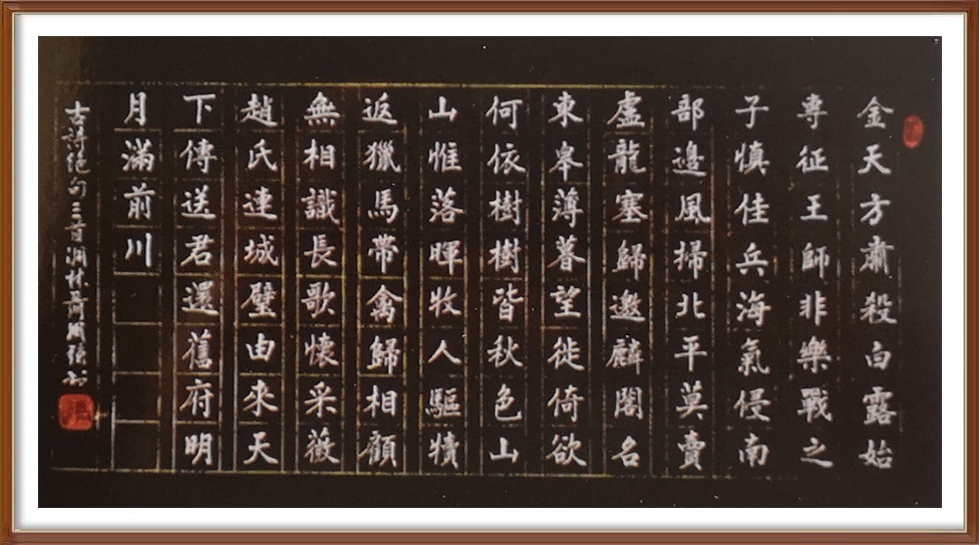 金天方肅殺白露始
專征王師非樂戰之
子慎佳兵海氣侵南
部邊風掃北平莫賣
盧龍塞歸邀麟閣名
東皋薄暮望徙倚欲
何依樹樹皆秋色山
山惟落暉牧人驅犢
返獵馬帶禽歸相顧
無相識長歌懷采薇
趙氏連城璧由來天
下傳送君還舊府明
月滿前川
古詩绝句三首